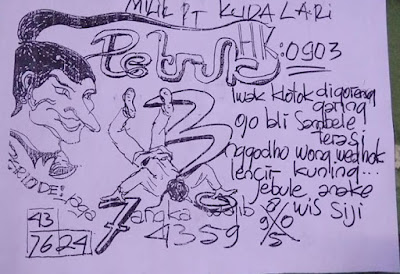 MILIK PT KUDA LARI
Petruk HK: 0903
Iwak klotok digoreng
garing
ojo bli sambele
terasi
nggodho wong wedhok
lencir kuning...
jebule anake
wis siji
PERIODE:
3
7 angka wajib
4359
43
76 24